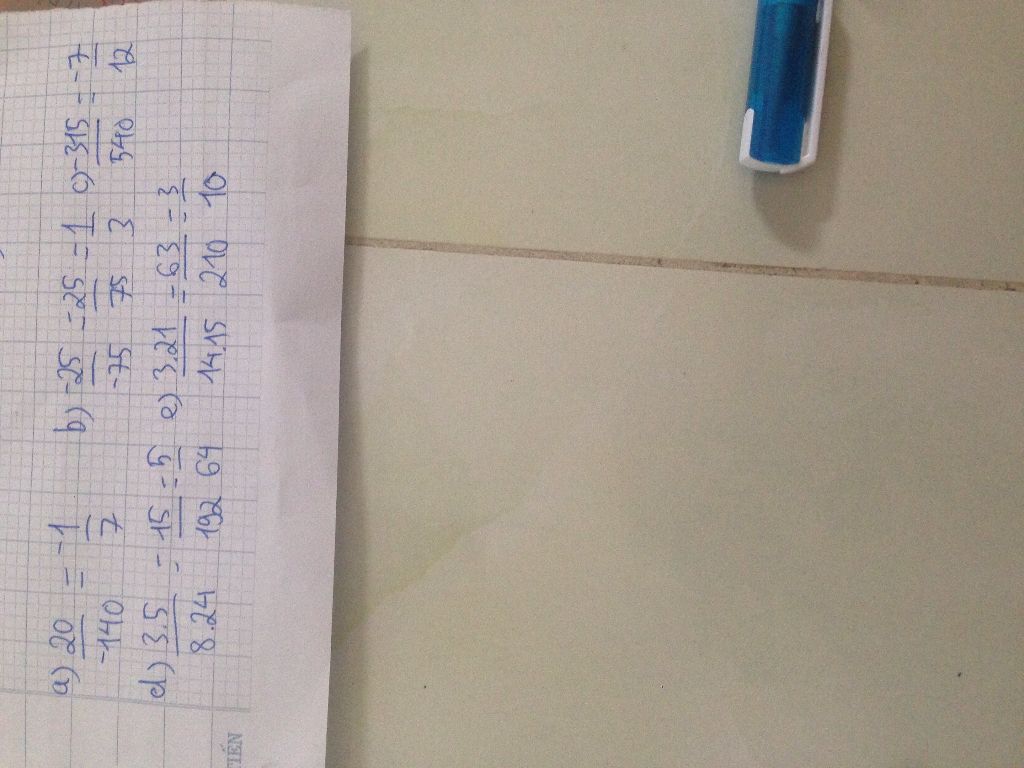 a) 20/-140 = -1/7 b) -25/-75 = 25/75 = 1/3 c) -315/540 = -7/12
d) 3.5/8.24 = 15/192 = 5/64 e) 3.21/14.15 = 63/210 = 3/10